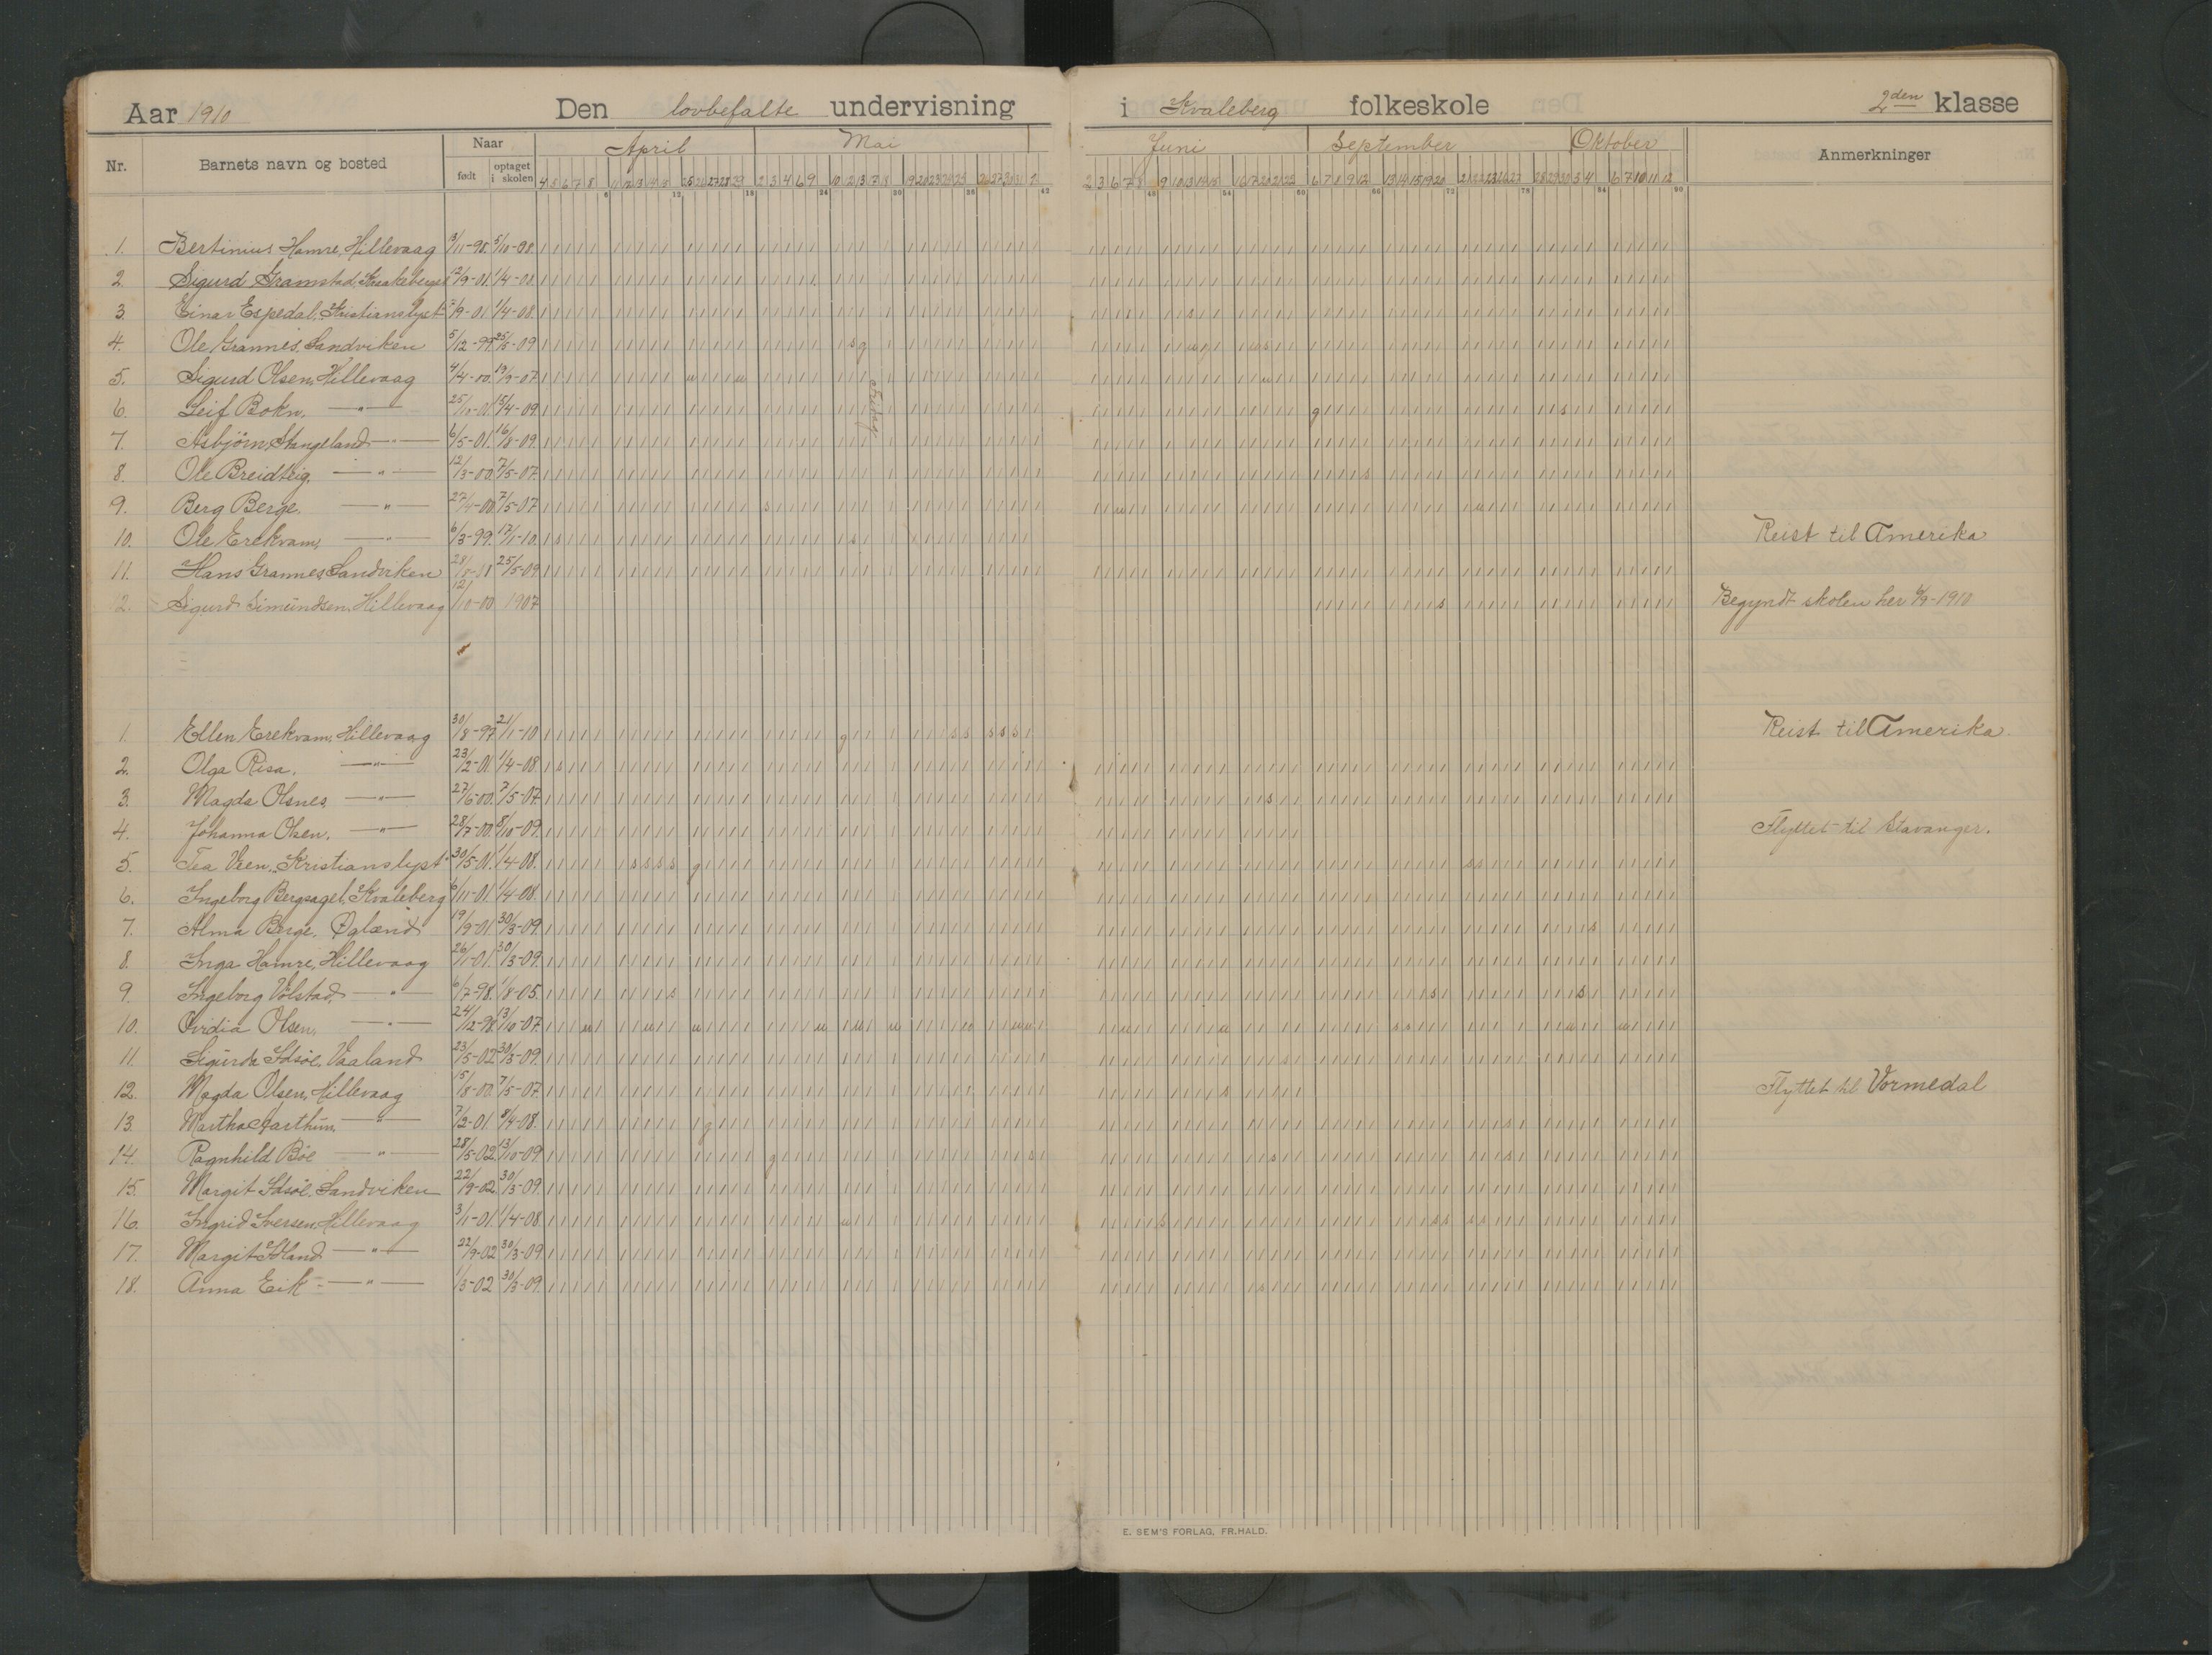 Aar 1910 Den lovbefalte undervisning i Kvaleberg folkeskole 2den klasse
Nr. Barnets navn og bosted Naar født optaget i skolen April Mai Juni September Oktober Anmerkninger
6 12 18 24 30 36 42 48 54 60 66 72 78 84 90
1. Bertinius Hamre, Hillevaag 13/11-98. 5/10-08.
2. Sigurd Gramstad, 12/9-01. 1/4-08.
3. Einar Espedal, Kristianslyst 7/9-01 1/4-08.
4. Ole Grannes, Sandviken 5/12-99 25/5-09
5. Sigurd Olsen, Hillevaag 4/4-00. 19/9-07.
6. Leif Bokn, —"— 25/10-01. 15/4-09.
7. Asbjörn Stangeland —"— 6/5-01. 16/8-09.
8. Ole Breidteig. —"— 12/3-00. 7/5-07.
9. Berg Berge. —"— 27/4-00. 7/5-07.
10. Ole Erekvam, —"— 6/3-99. 17/1-10. Reist til Amerika
11. Hans Grannes Sandviken 25/5-09
12. Sigurd Simundsen, Hillevaag 12/10-00 1907 Begyndt skolen her 6/9-1910
1. Ellen Erekvam, Hillevaag 30/8-97. 21/1-10 Reist til Amerika.
2. Olga Risa. —"— 23/2-01. 1/4-08
3. Magda Olsnes, —"— 27/6-00. 7/5-07
4. Johanna Olsen. —"— 28/7-00. 8/10-09. Flyttet til Stavanger.
5. Tea Veen, Kristianslyst 30/5-01. 1/4-08.
6. Ingeborg Bergsagel, Kvaleberg 6/11-01. 1/4-08.
7. Alma Berge. Øgland 19/9-01. 30/3-09
8. Inga Hamre, Hillevaag 26/1-01. 30/3-09.
9. Ingeborg Volstad, —"— 6/7-98. 1/8-05.
10. Ovidia Olsen, —"— 24/12-98. 13/10-07.
11. Sigurda Idsöe, Vaaland 23/5-02 30/3-09.
12. Magda Olsen, Hillevaag 15/8-00. 7/5-07. Flyttet til Vormedal
13. Martha Aarthun —"— 7/2-01. 8/4-08.
14. Ragnhild Böe —"— 28/5-02. 13/10-09
15. Margit Idsöe, Sandviken 22/9-02 30/3-09.
16. Ingrid Iversen, Hillevaag 3/1-01. 1/4-08
17. Margit —"— 22/9-02 30/3-09.
18. Anna Eik —"— 1/3-02 30/3-09.
E. SEM'S FORLAG, FR.HALD.